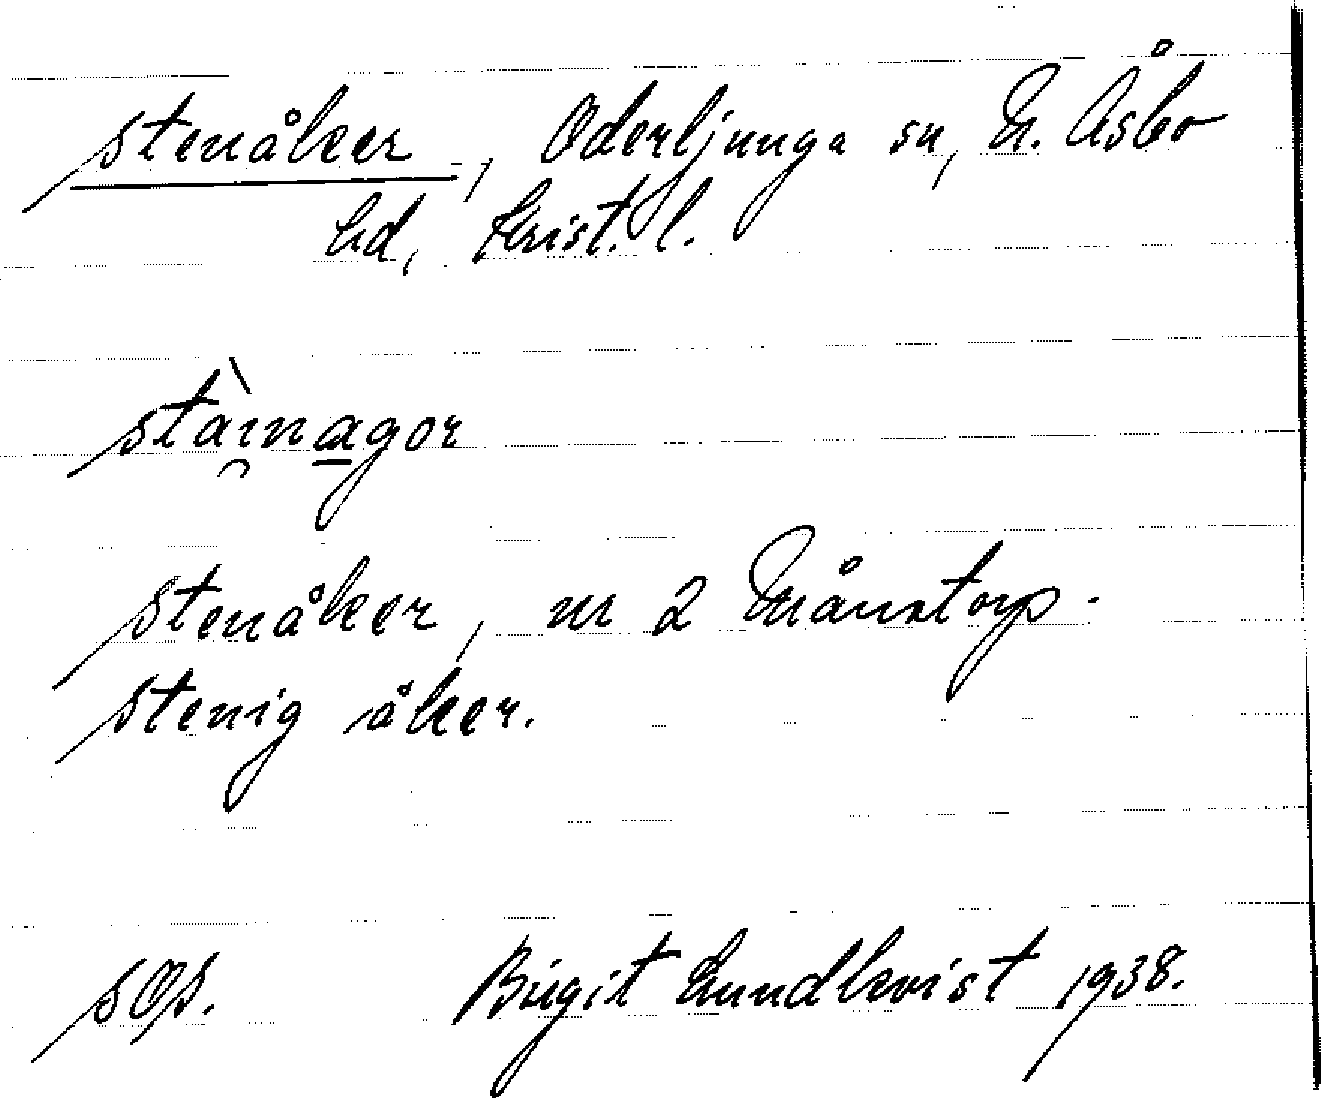 stenåker, Oderljunga sn, N. Åsbo
hd, Krist. l.
stàınagor
stenåker, nr 2 Månstorp.
stenig åker.
Birgit Lundkvist 1938.